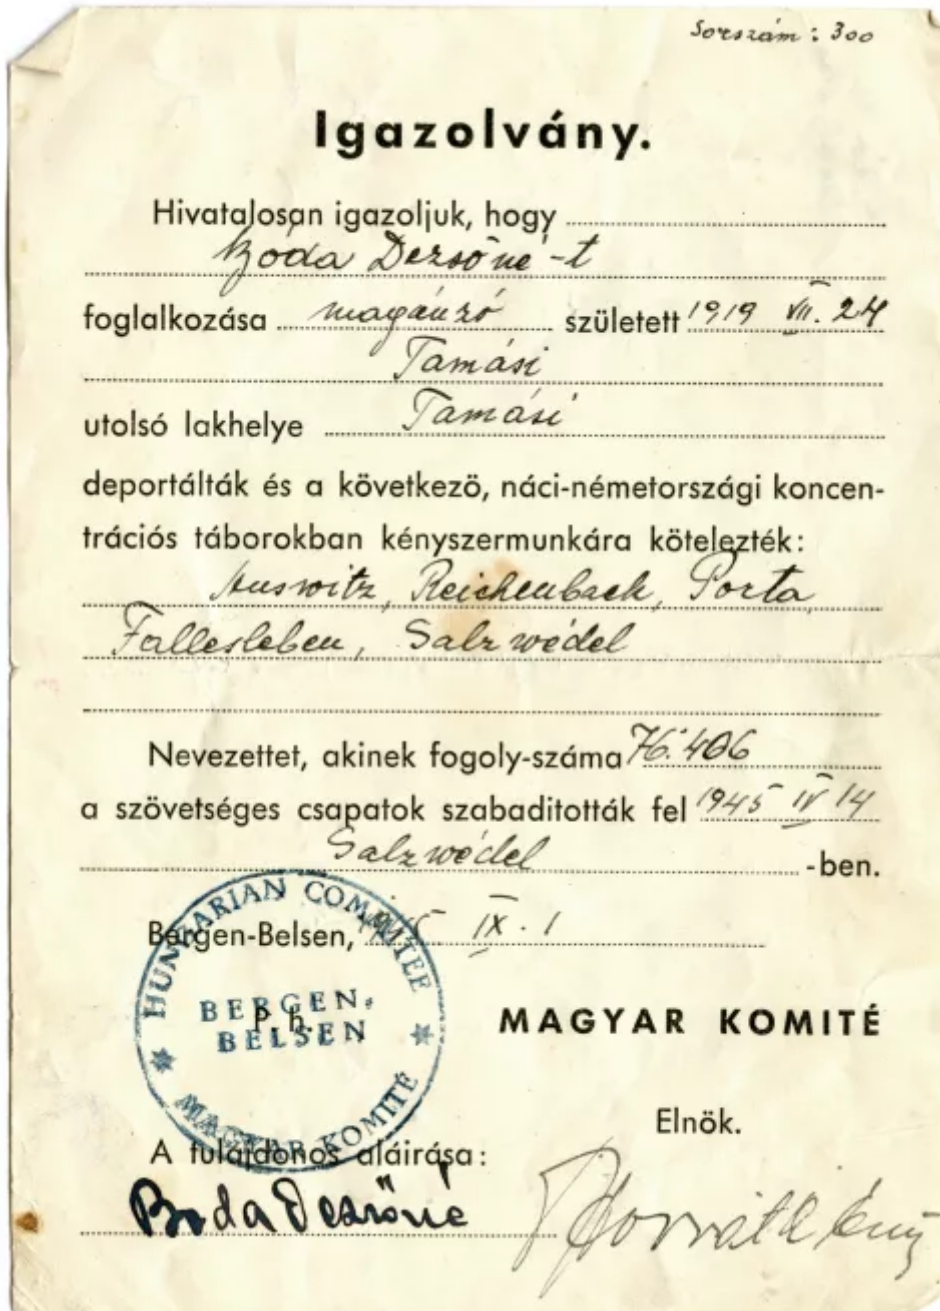 Sorszám: 300
Igazolvány.
Hivatalosan igazoljuk, hogy
Bóda Dezsőné-t
foglalkozása magánzó született 1919 VII. 24
Tamási
utolsó lakhelye Tamási
deportálták és a következö, náci-németországi koncen-
trációs táborokban kényszermunkára kötelezték:
Auswitz, Reichenbach, Porta,
Fallesleben, Salzwédel
Nevezettet, akinek fogoly-száma 76.406
a szövetséges csapatok szabaditották fel 1945 IV 14
Salzwédel -ben.
Bergen-Belsen, 1945 IX. 1
HUNGARIAN COMMITEE
BERGEN-
BELSEN
MAGYAR KOMITÉ
P. h.
MAGYAR KOMITÉ
Elnök.
A tulajdonos aláirása:
Boda Dezsőné
Horváth